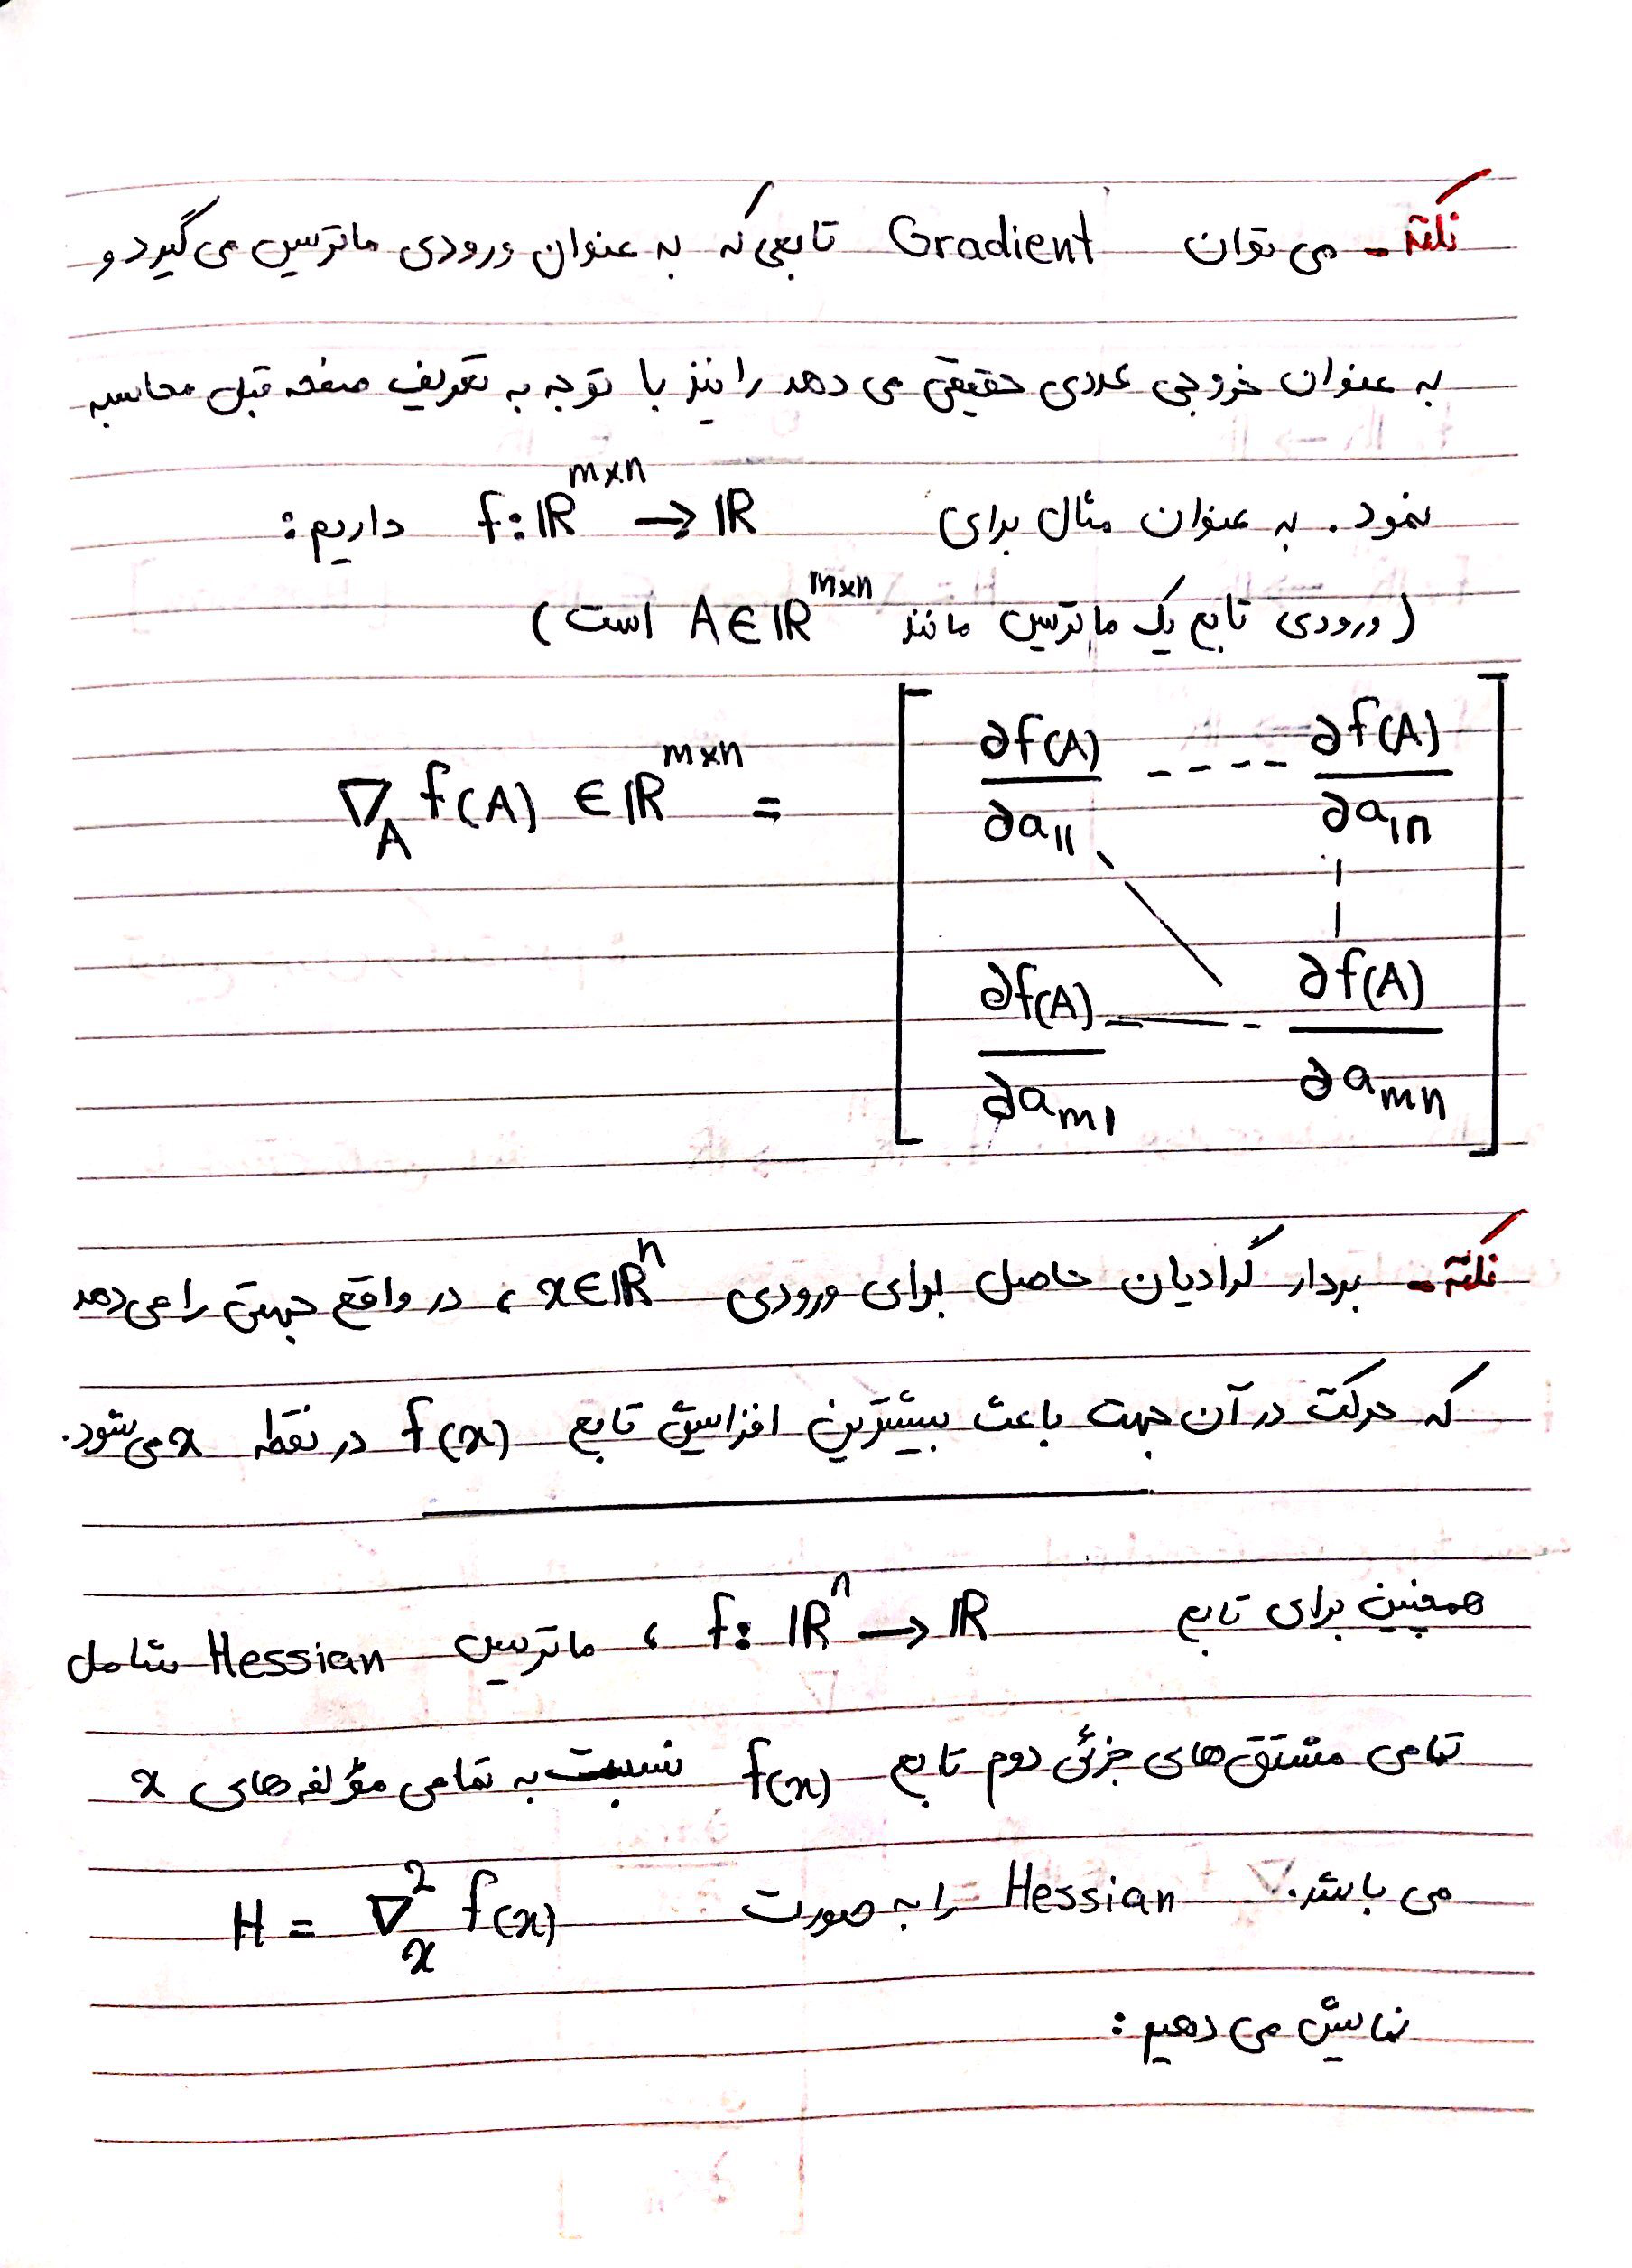 نکته - می توان Gradient تابعی که به عنوان ورودی ماتریس می گیرد و
به عنوان خروجی عددی حقیقی می دهد را نیز با توجه به تعریف صفحه قبل محاسبه
نمود. به عنوان مثال برای f: ℝ^{m×n} → ℝ داریم:
(ورودی تابع یک ماتریس مانند A ∈ ℝ^{m×n} است)
∇_A f(A) ∈ ℝ^{m×n} = [ ∂f(A)/∂a_{11} ---- ∂f(A)/∂a_{1n}
∂f(A)/∂a_{m1} --- ∂f(A)/∂a_{mn} ]
نکته - بردار گرادیان حاصل برای ورودی x ∈ ℝ^n ، در واقع جهتی را می دهد
که حرکت در آن جهت باعث بیشترین افزایش تابع f(x) در نقطه x می شود.
همچنین برای تابع f: ℝ^n → ℝ ، ماتریس Hessian شامل
تمامی مشتق های جزئی دوم تابع f(x) نسبت به تمامی مؤلفه های x
می باشد. Hessian را به صورت H = ∇_x^2 f(x)
نمایش می دهیم: